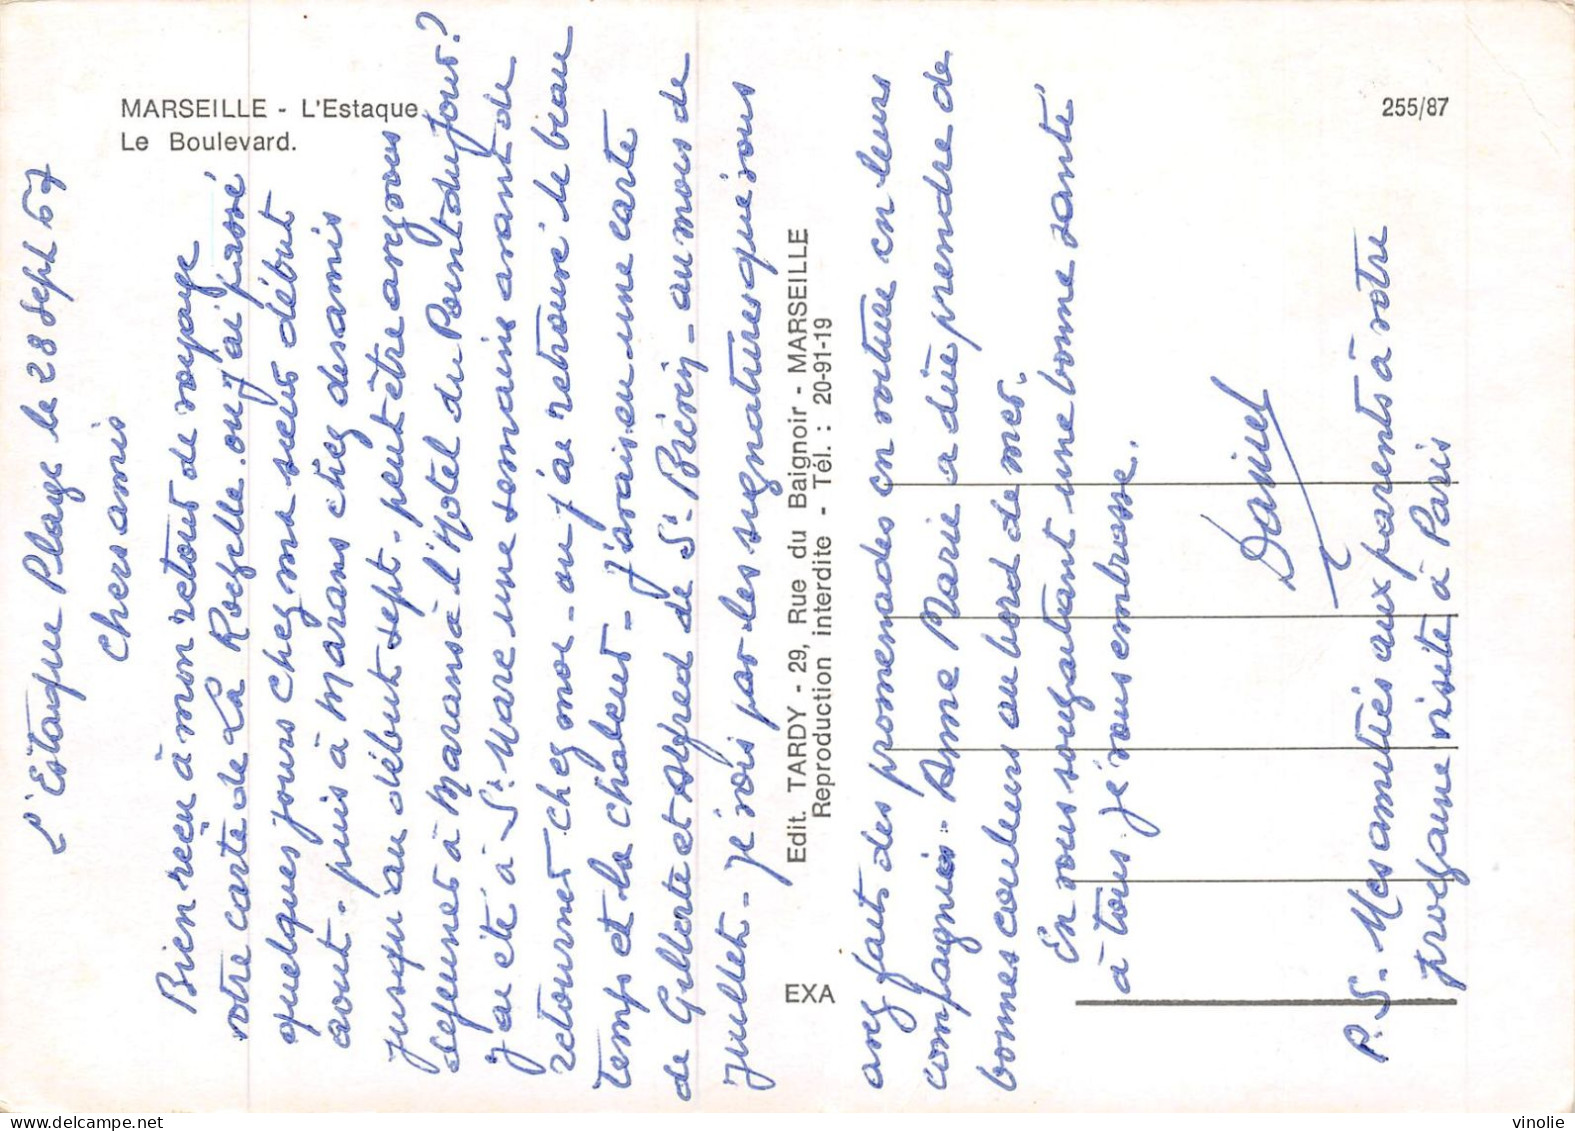 MARSEILLE - L'Estaque
Le Boulevard.
255/87
L'Estaque Plage le 28 Sept 67
Chers amis
Bien reçu à mon retour de voyage
votre carte de La Rochelle où j'ai passé
quelques jours chez ma sœur début
aout - puis à Marans chez des amis
jusqu'au début sept. peut être avez vous
dejeuner à Marans à l'Hotel du Point du Jour?
J'ai été à St Marc une semaine avant de
retourner chez moi - où j'ai retrouvé le beau
temps et la chaleur - J'avais eu une carte
de Gilberte et Alfred de St Briciy - au mois de
Juillet - Je vois par les signatures que vous
Edit. TARDY - 29, Rue du Baignoir - MARSEILLE
Reproduction interdite - Tél. : 20-91-19
EXA
avez faits des promenades en voiture en leurs
compagnie - Anne Marie a dûe prendre de
bonnes couleurs au bord de mer.
En vous souhaitant une bonne santé
à tous je vous embrasse.
Daniel
P.S. Mes amitiés aux parents à votre
prochaine visite à Paris
vinolie